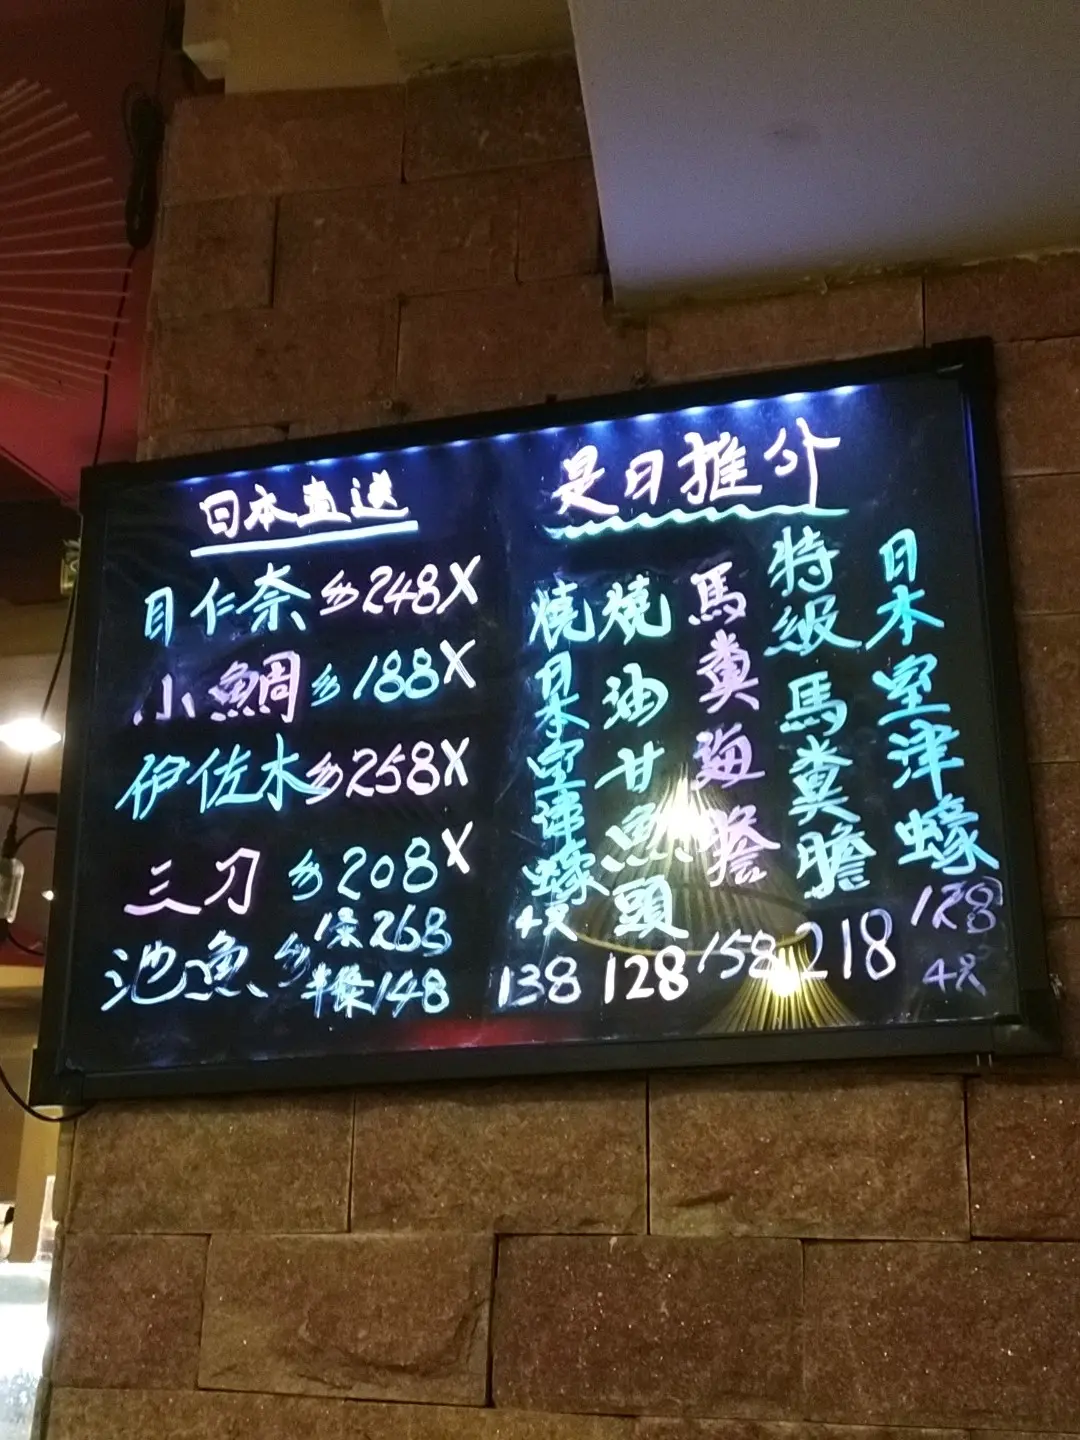 日本直送
目仁奈 $248X
小鯛 $188X
伊佐木 $258X
三刀 $208X
池魚 $ 1条268
半條148
是日推介
日本室津蠔
128
4只
特級馬糞膽
218
馬糞海膽
158
燒油甘魚頭
128
燒日本室津蠔
4只
138